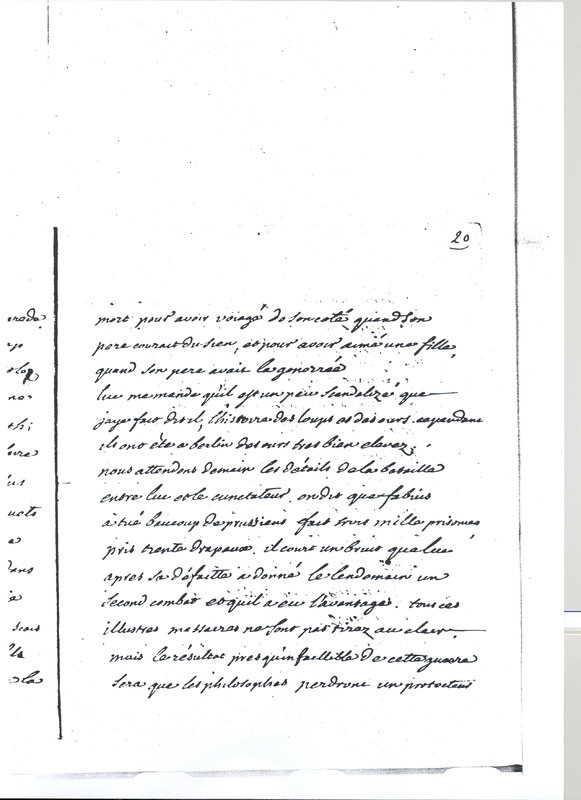 20
mort pour avoir voiagé de son coté quand son
pere courait du sien, et pour avoir aimé une fille,
quand son pere avait la gonorrée
luc me mande qu'il est un peu scandalizé que
jaye fait dit il, l'histoire des loups et des ours. cependant
ils ont été a berlin des ours tres bien elevez.
nous attendons demain les détails de la bataille
entre luc et le cunctateur on dit que fabius
a tué beaucoup de prussiens fait trois mille prisoners
pris trente drapeaux. il court un bruit que luc
apres sa défaitte a donné le lendemain un
second combat et quil a eu l'avantage. tous ces
illustres massacres ne sont pas tirez au clair.
mais le résultat presqu'infaillible de cette guerre
sera que les philosophes perdront un protecteur